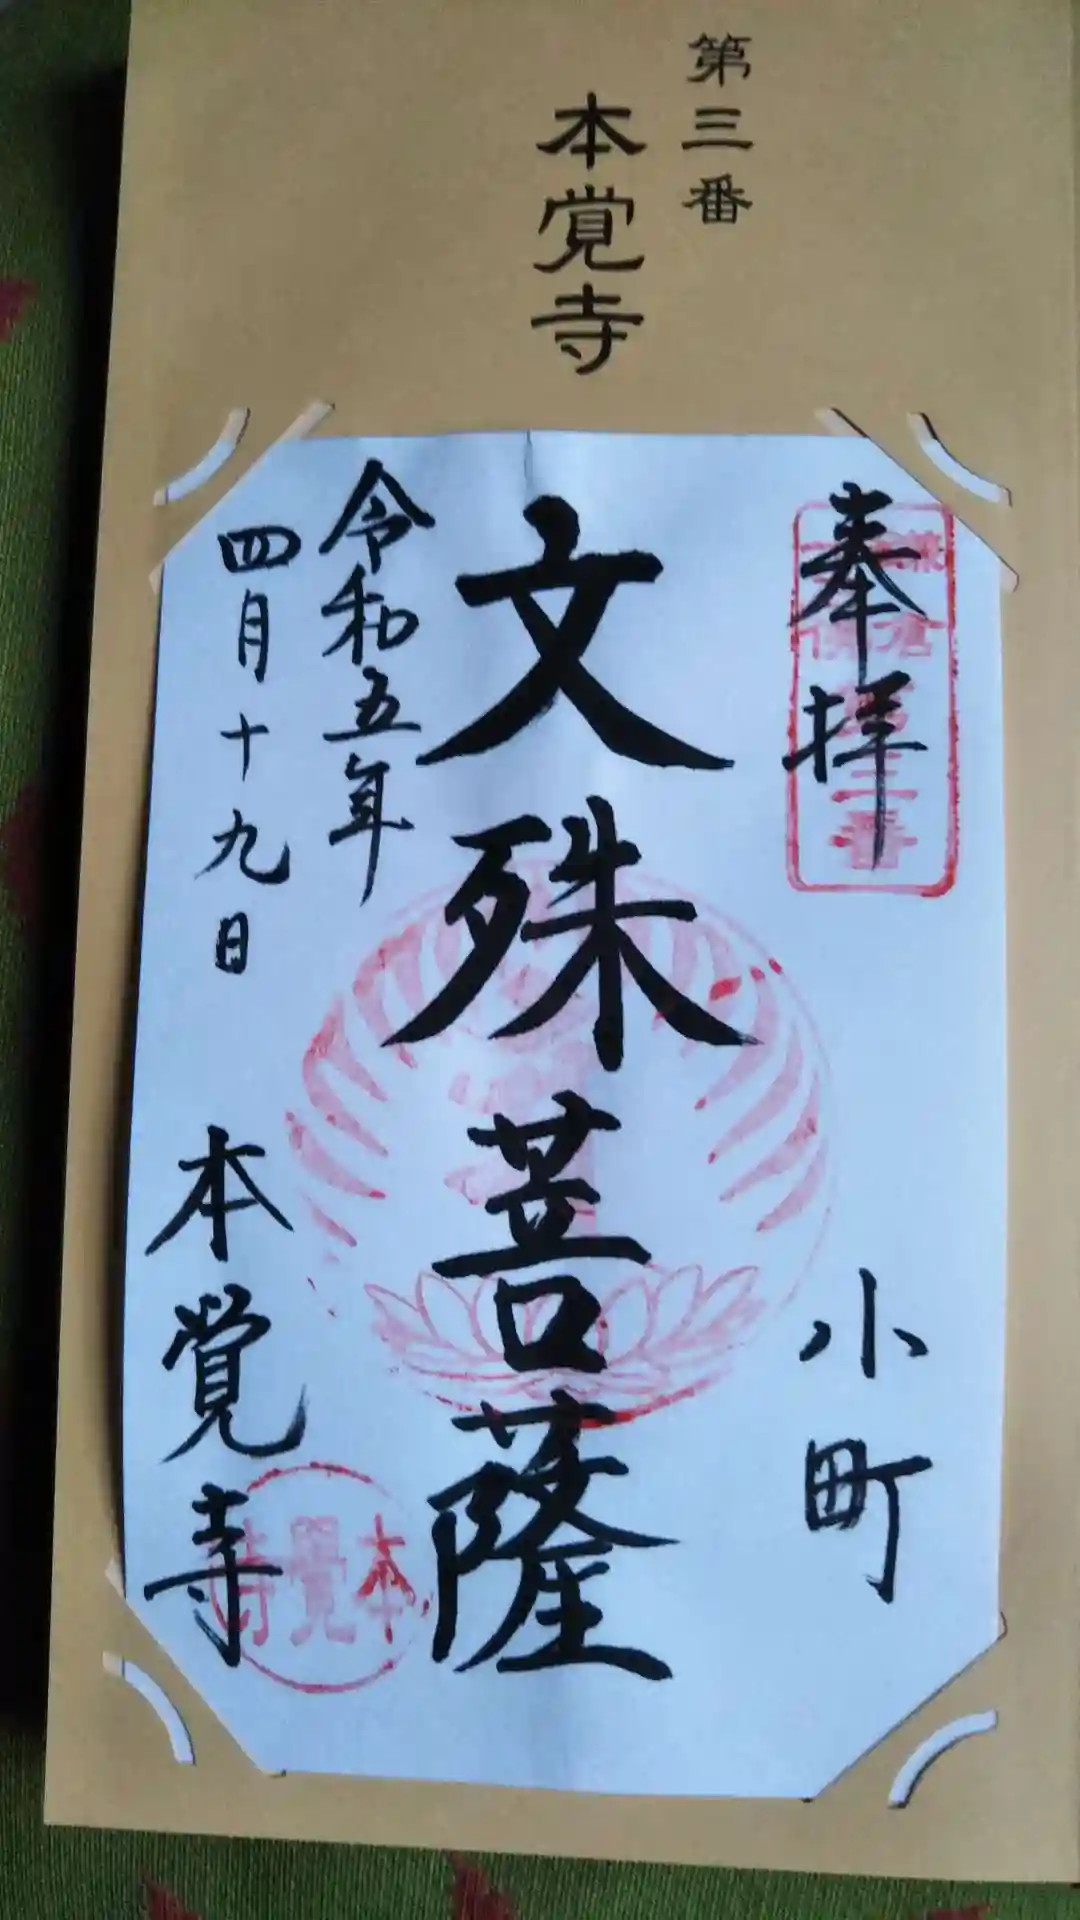 第三番
本覚寺
奉拝
小町
文殊菩薩
令和五年
四月十九日
本覺寺
本覺寺